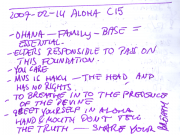 2009-02-14 ALOHA C15
- OHANA - FAMILY - BASE = ESSENTIAL.
- ELDERS RESPONSIBLE TO PASS ON THIS FOUNDATION.
- YOU CARE
- IS HAKU - THE HEAD AND HAS NO RIGHTS
- TO BREATHE IN TO THE PRESENCE OF THE DEVINE
- GREET YOURSELF IN ALOHA
- HAND & MOUTH DON'T TELL THE TRUTH - SHARE YOUR BREATH